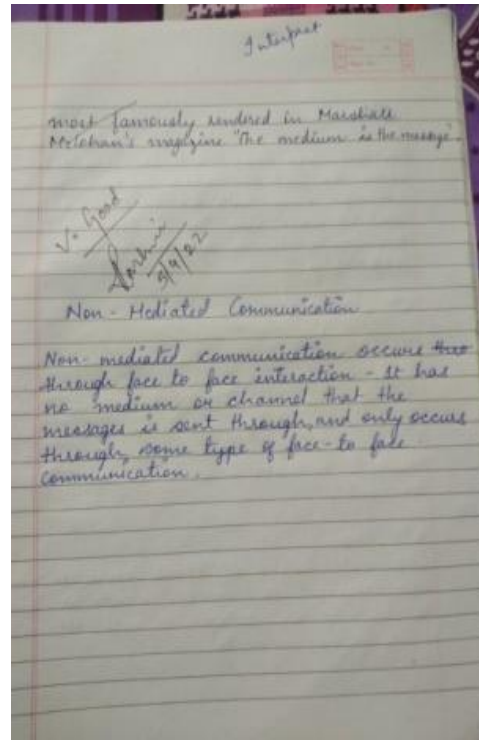 Interpact
most famously rendered in Marshall
McLohan's magazine "The medium is the message".
V. Good
5/4/22
Non-Mediated Communication
Non-mediated communication occurs thro
through face to face interaction - it has
no medium or channel that the
messages is sent through, and only occurs
through, some type of face-to face
communication.